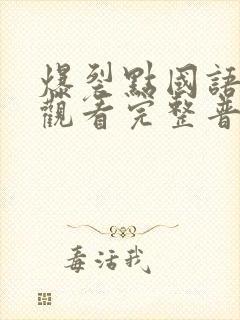 爆裂點國語
觀看完整普
毒活我